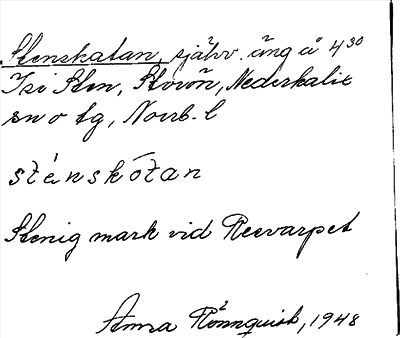 Stenskatan, självv. äng å 4³⁰
Isi Sten, Storön, Nederkalix
sn o tg, Norrb. l
sténskòtan
Stenig mark vid Reevarpet
Anna Rönnquist, 1948